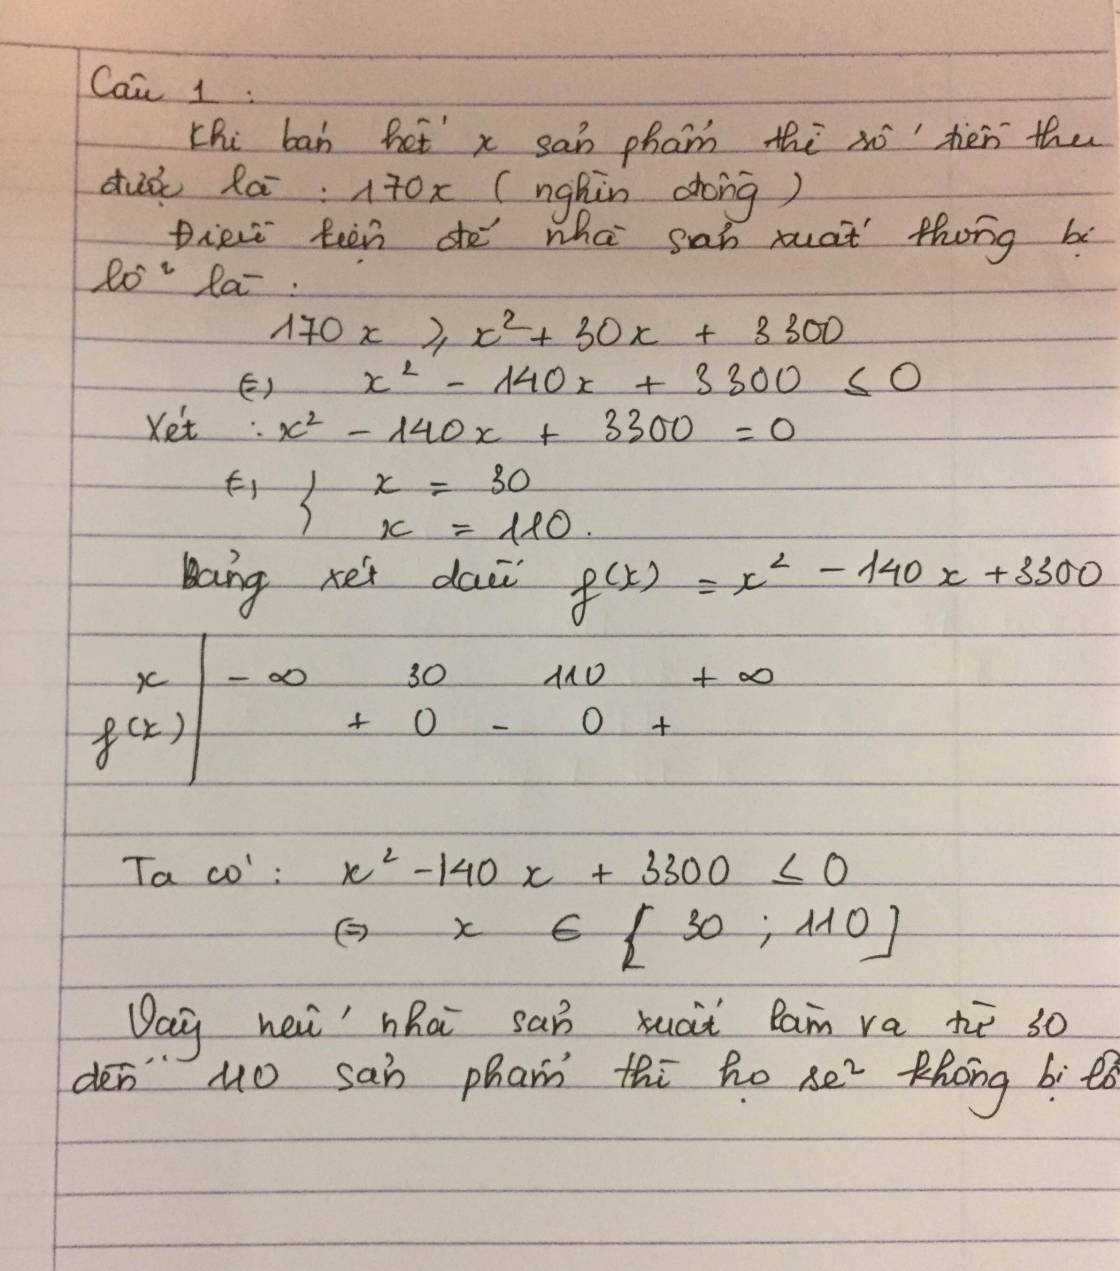 Câu 1 :
Khi bán hết x sản phẩm thì số tiền thu
được là : 170x ( nghìn đồng )
Điều kiện để nhà sản xuất không bị
lỗ là :
170x ⩾ x² + 30x + 3300
⇔ x² - 140x + 3300 ≤ 0
Xét : x² - 140x + 3300 = 0
⇔ { x = 30
x = 110.
Bảng xét dấu f(x) = x² - 140x + 3300
x | - ∞ 30 110 + ∞
f(x) | + 0 - 0 +
Ta có : x² - 140x + 3300 ≤ 0
⇔ x ∈ [ 30 ; 110 ]
Vậy nếu nhà sản xuất làm ra từ 30
đến 110 sản phẩm thì họ sẽ không bị lỗ